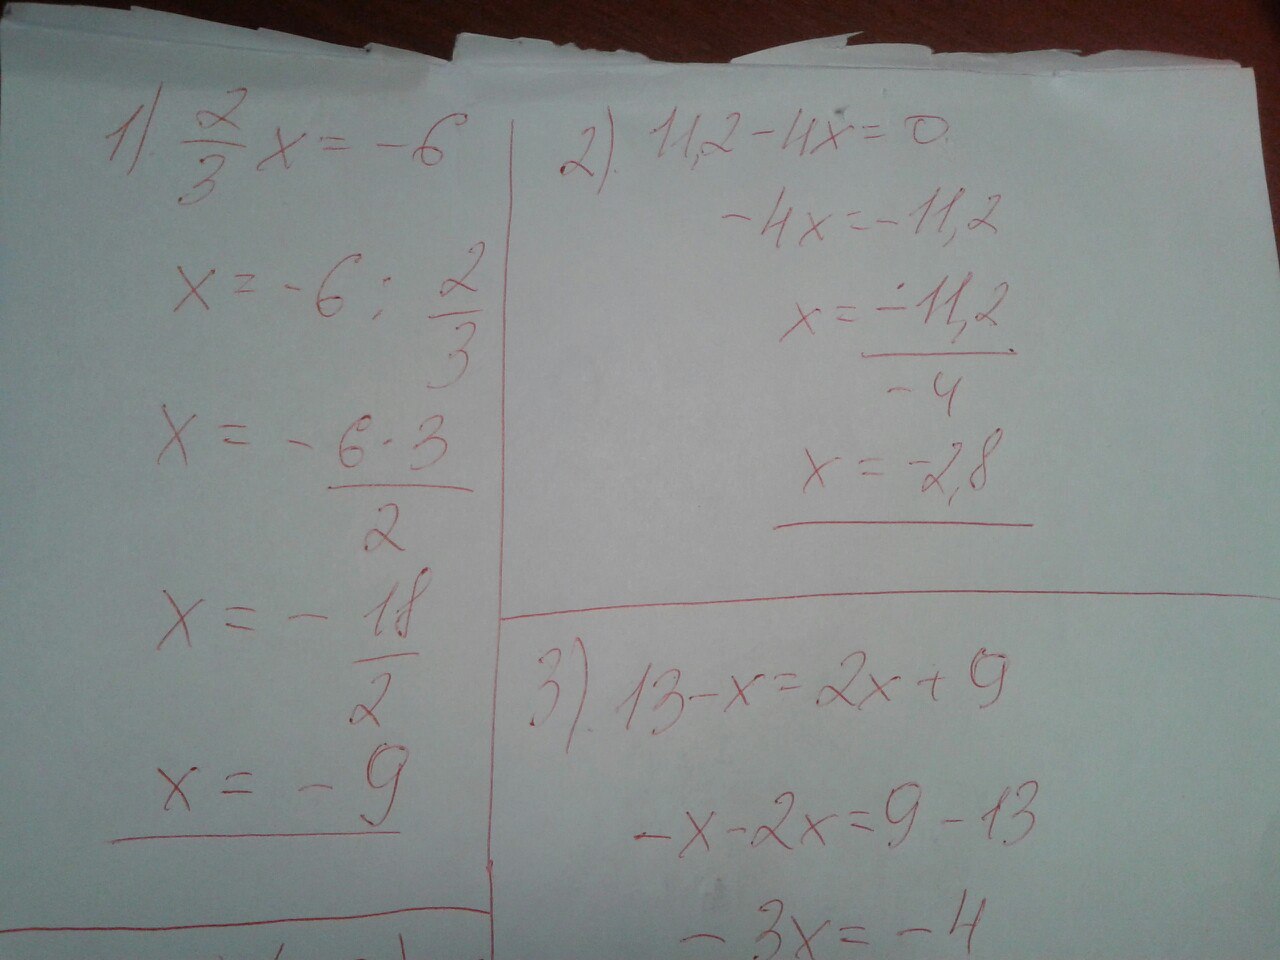 1) 2/3 x = -6
x = -6 : 2/3
x = - 6·3/2
x = - 18/2
x = - 9
2) 11,2 - 4x = 0
-4x = -11,2
x = -11,2/-4
x = -2,8
3) 13 - x = 2x + 9
-x - 2x = 9 - 13
- 3x = -4